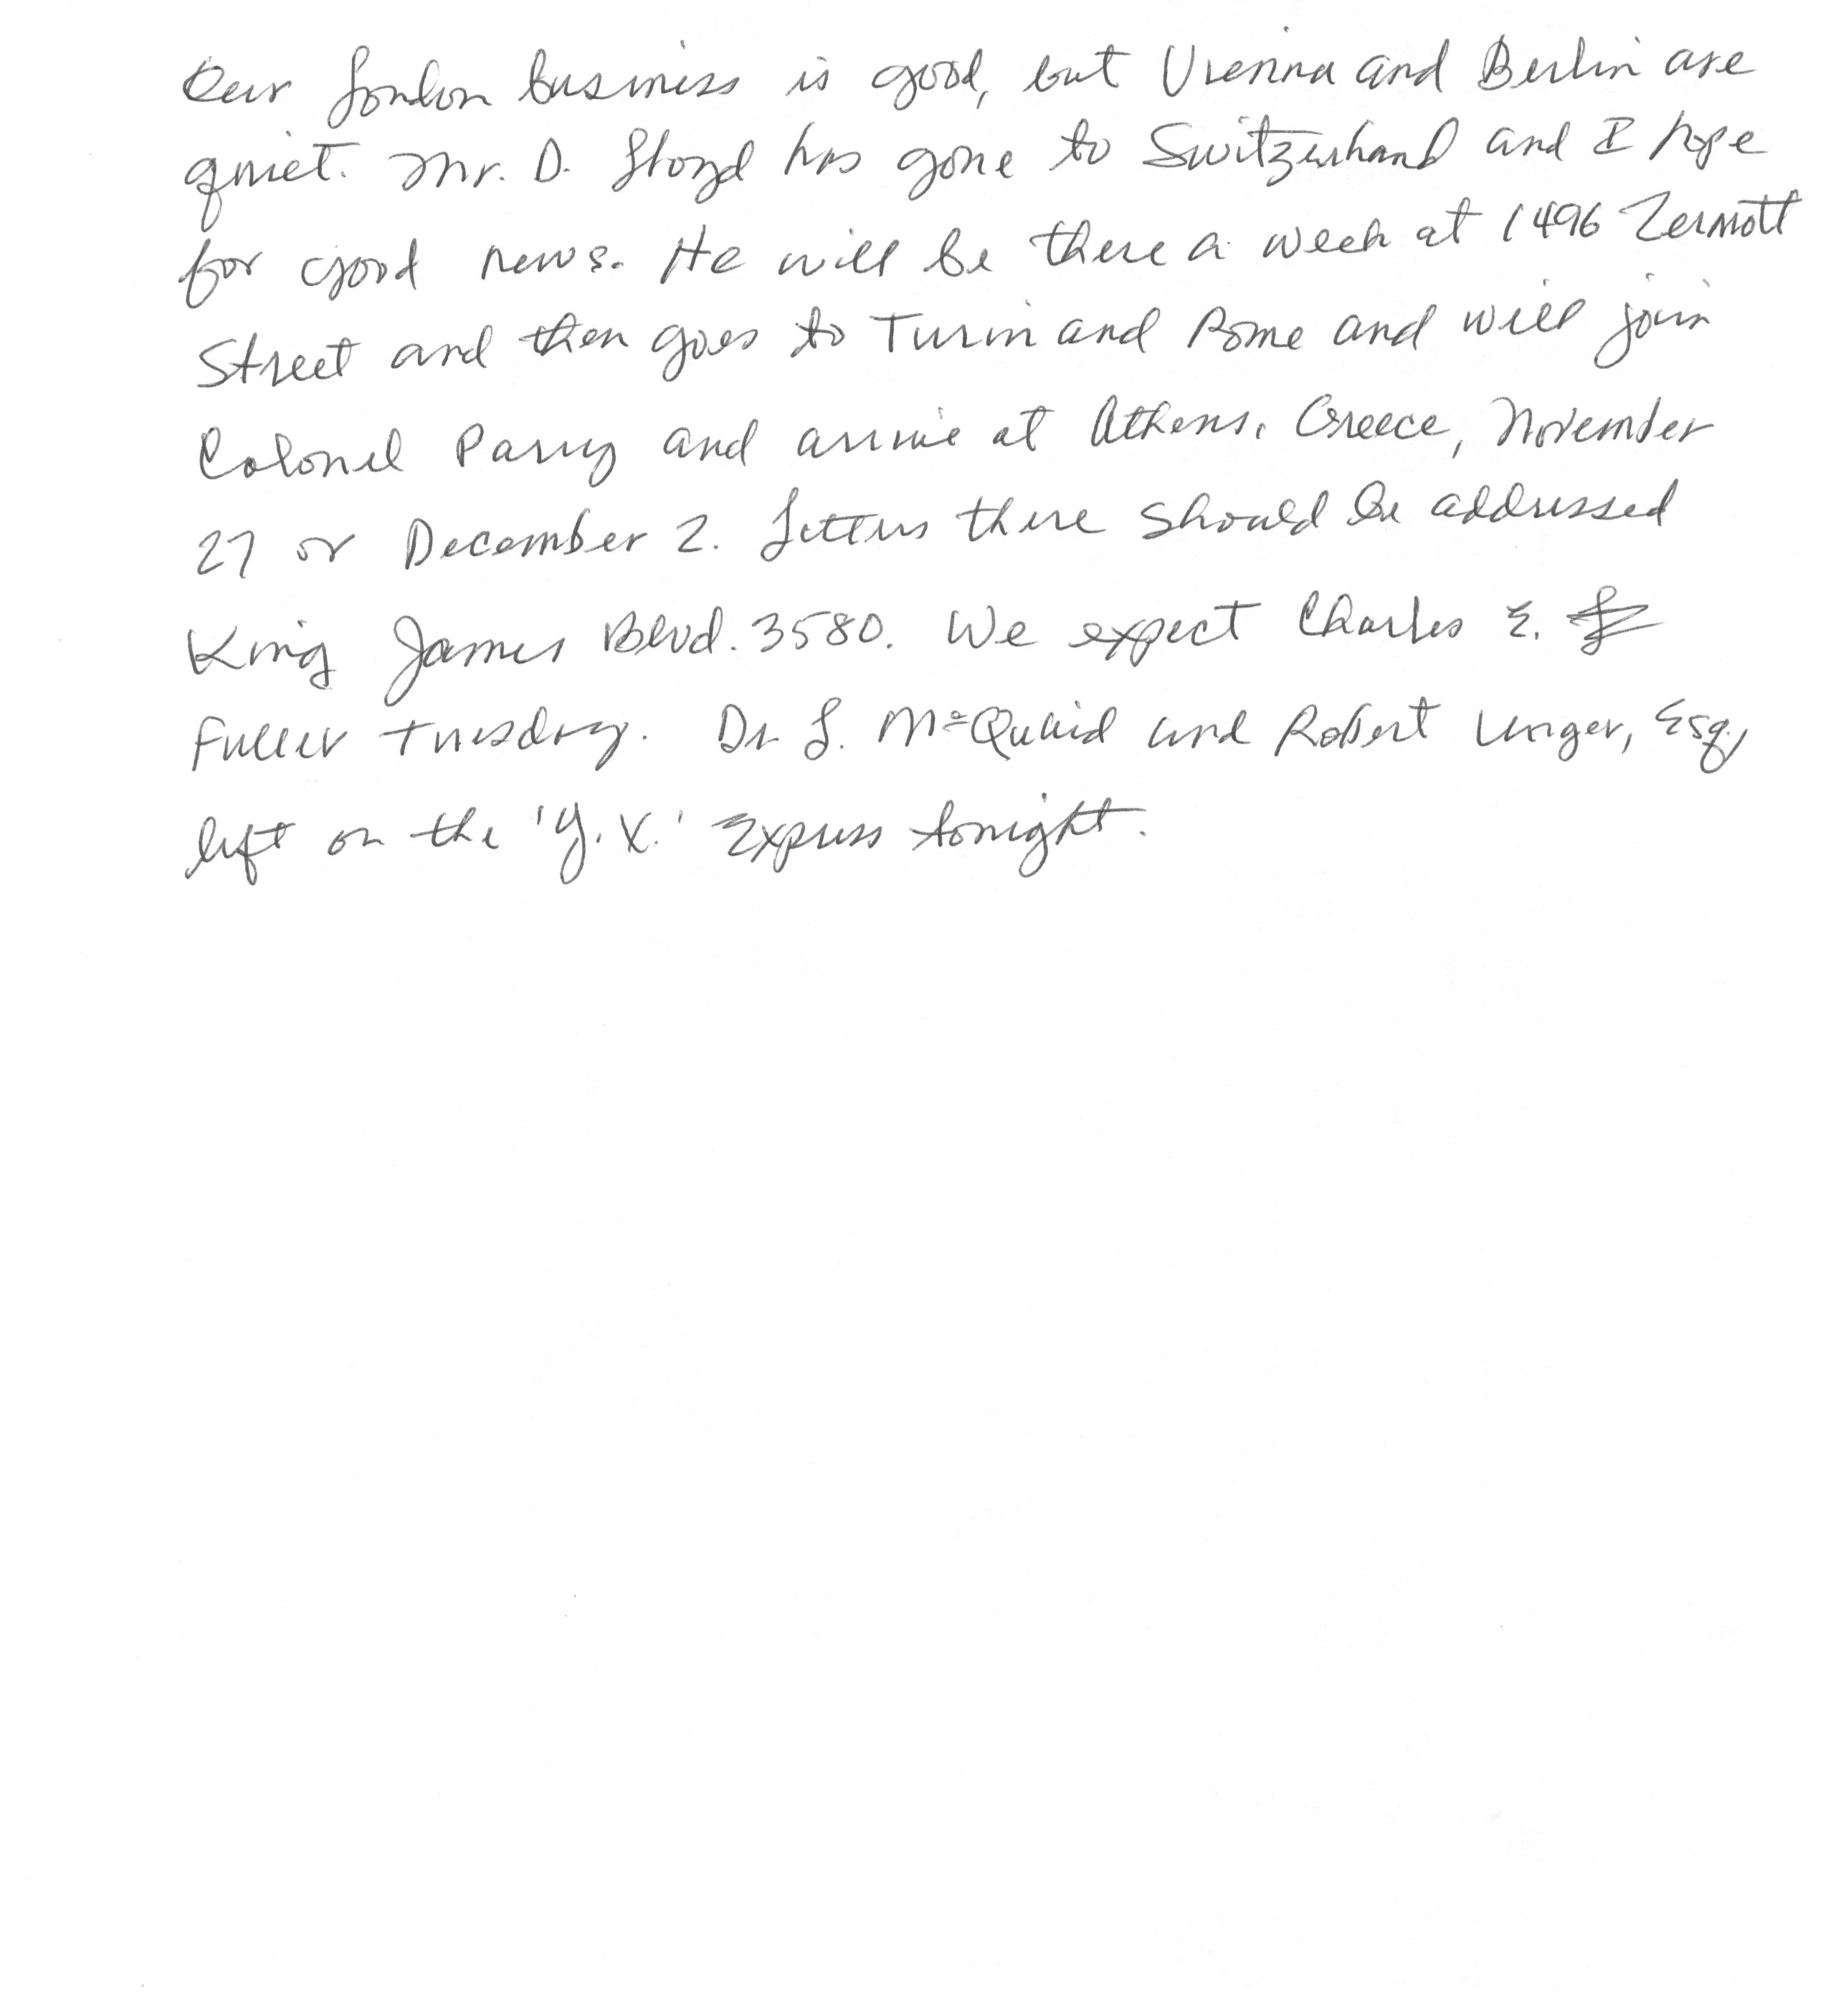 Our London business is good, but Vienna and Berlin are
quiet. Mr. D. Lloyd has gone to Switzerland and I hope
for good news. He will be there a week at 1496 Zermott
Street and then goes to Turin and Rome and will join
Colonel Parry and arrive at Athens, Greece, November
27 or December 2. Letters there should be addressed
King James Blvd. 3580. We expect Charles E.
Fuller Tuesday. Dr. L. McQuaid and Robert Unger, Esq.,
left on the 'Y.X.' Express tonight.